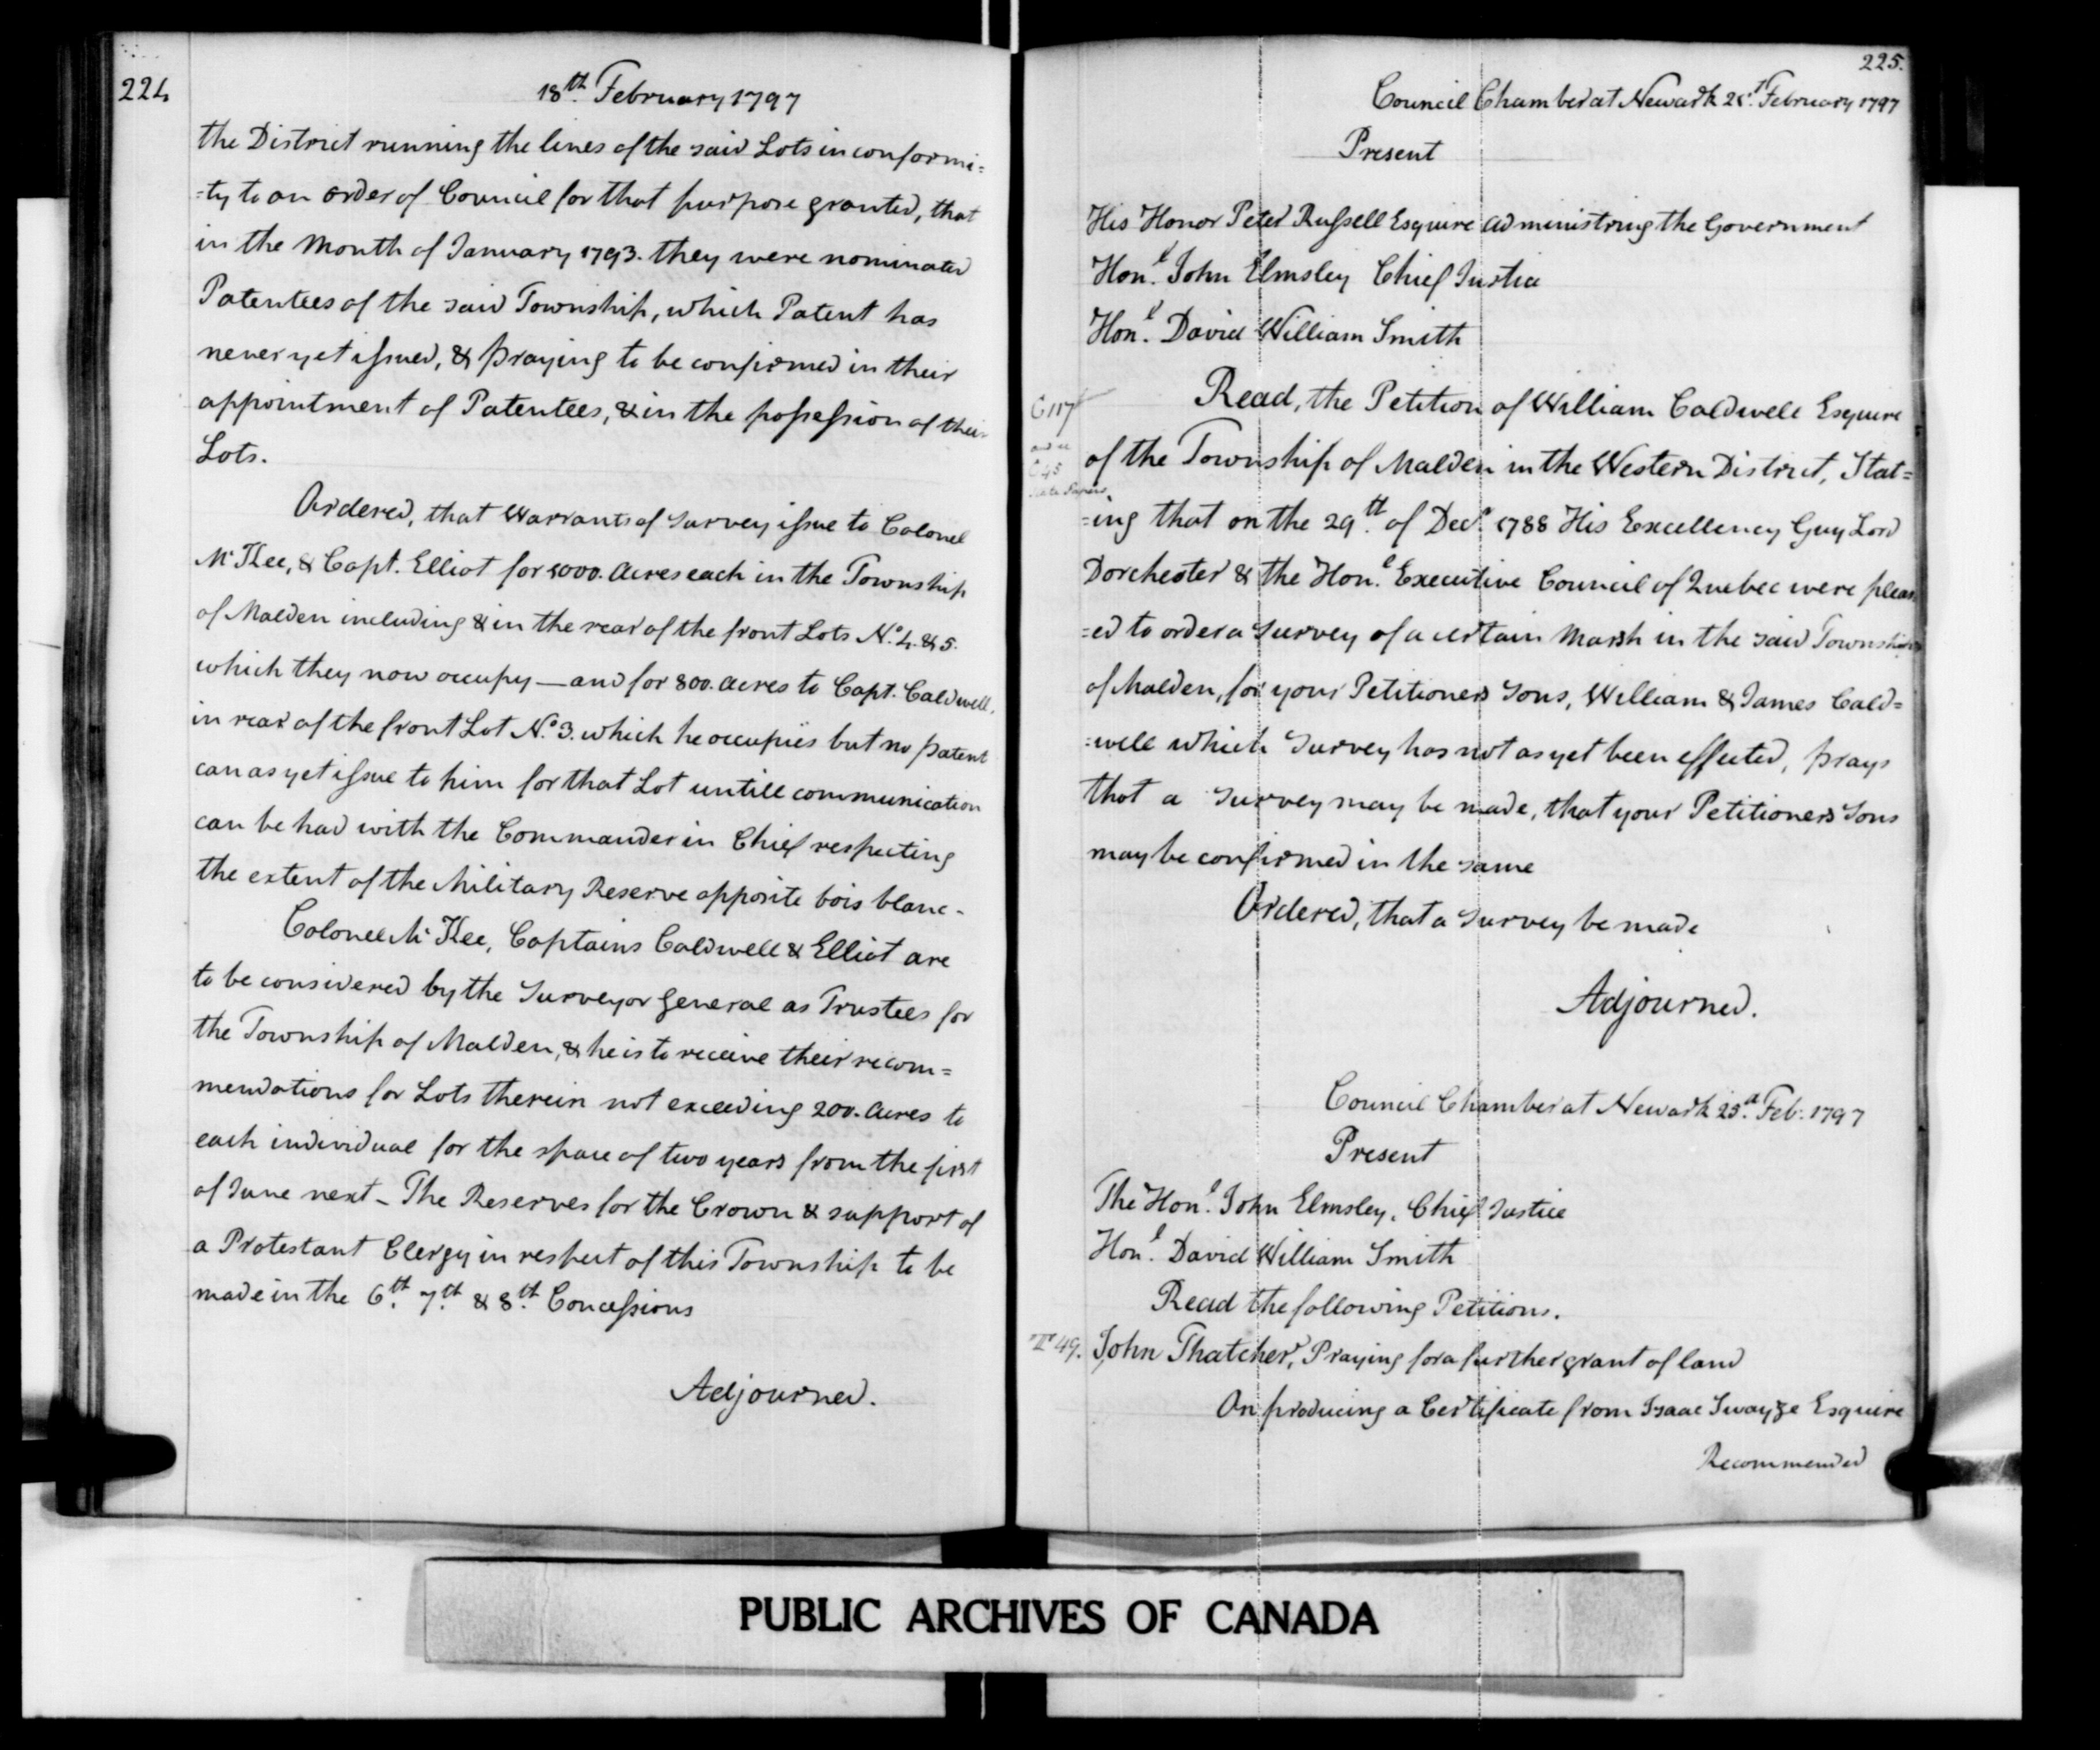 224
18th. February 1797
the District running the lines of the said Lots in conformi=
=ty to an order of Council for that purpose granted, that
in the Month of January 1793. they were nominated
Patentees of the said Township, which Patent has
never yet issued, & praying to be confirmed in their
appointment of Patentees, & in the possession of their
Lots.
Ordered, that Warrants of Survey issue to Colonel
Mc Kee, & Capt. Elliot for acres each in the Township
of Malden including & in the rear of the front Lots No. 4. & 5.
which they now occupy — and for 800. acres to Capt. Caldwell,
in rear of the front Lot No. 3. which he occupies but no patent
can as yet issue to him for that Lot untill communication
can be had with the Commander in Chief respecting
the extent of the Military Reserve opposite bois blanc -
Colonel Mc Kee, Captains Caldwell & Elliot are
to be considered by the Surveyor General as Trustees for
the Township of Malden, & he is to receive their recom=
mendations for Lots therein not exceeding 200. acres to
each individual for the space of two years from the first
of June next - The Reserves for the Crown & support of
a Protestant Clergy in respect of this Township to be
made in the 6th. 7th. & 8th. Concessions
Adjourned.
225.
Council Chamber at Newark February 1797
Present
His Honor Peter Russell Esquire administring the Government
Honl. John Elmsley Chief Justice
Honl. David William Smith
C 117
Read, the Petition of William Caldwell Esquire
of the Township of Malden in the Western District, Stat=
=ing that on the 29th. of Decr. 1788 His Excellency Guy Lord
Dorchester & the Honl. Executive Council of Quebec were pleas
=ed to order a Survey of a certain Marsh in the said Township
of Malden, for your Petitioners Sons, William & James Cald=
=well which Survey has not as yet been effected, prays
that a Survey may be made, that your Petitioners Sons
may be confirmed in the same
Ordered, that a Survey be made
Adjourned.
Council Chamber at Newark 23.d Feb: 1797
Present
The Honl. John Elmsley, Chief Justice
Honl. David William Smith
Read the following Petitions.
T 49. John Thatcher, Praying for a further grant of land
On producing a Certificate from Isaac Swayze Esquire
Recommended
PUBLIC ARCHIVES OF CANADA